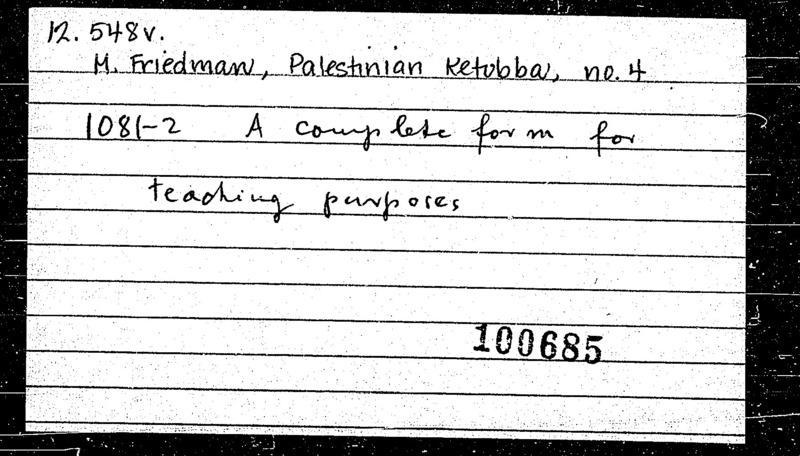 12. 548v.
M. Friedman, Palestinian Ketubba, no. 4
1081-2 A complete form for
teaching purposes
100685